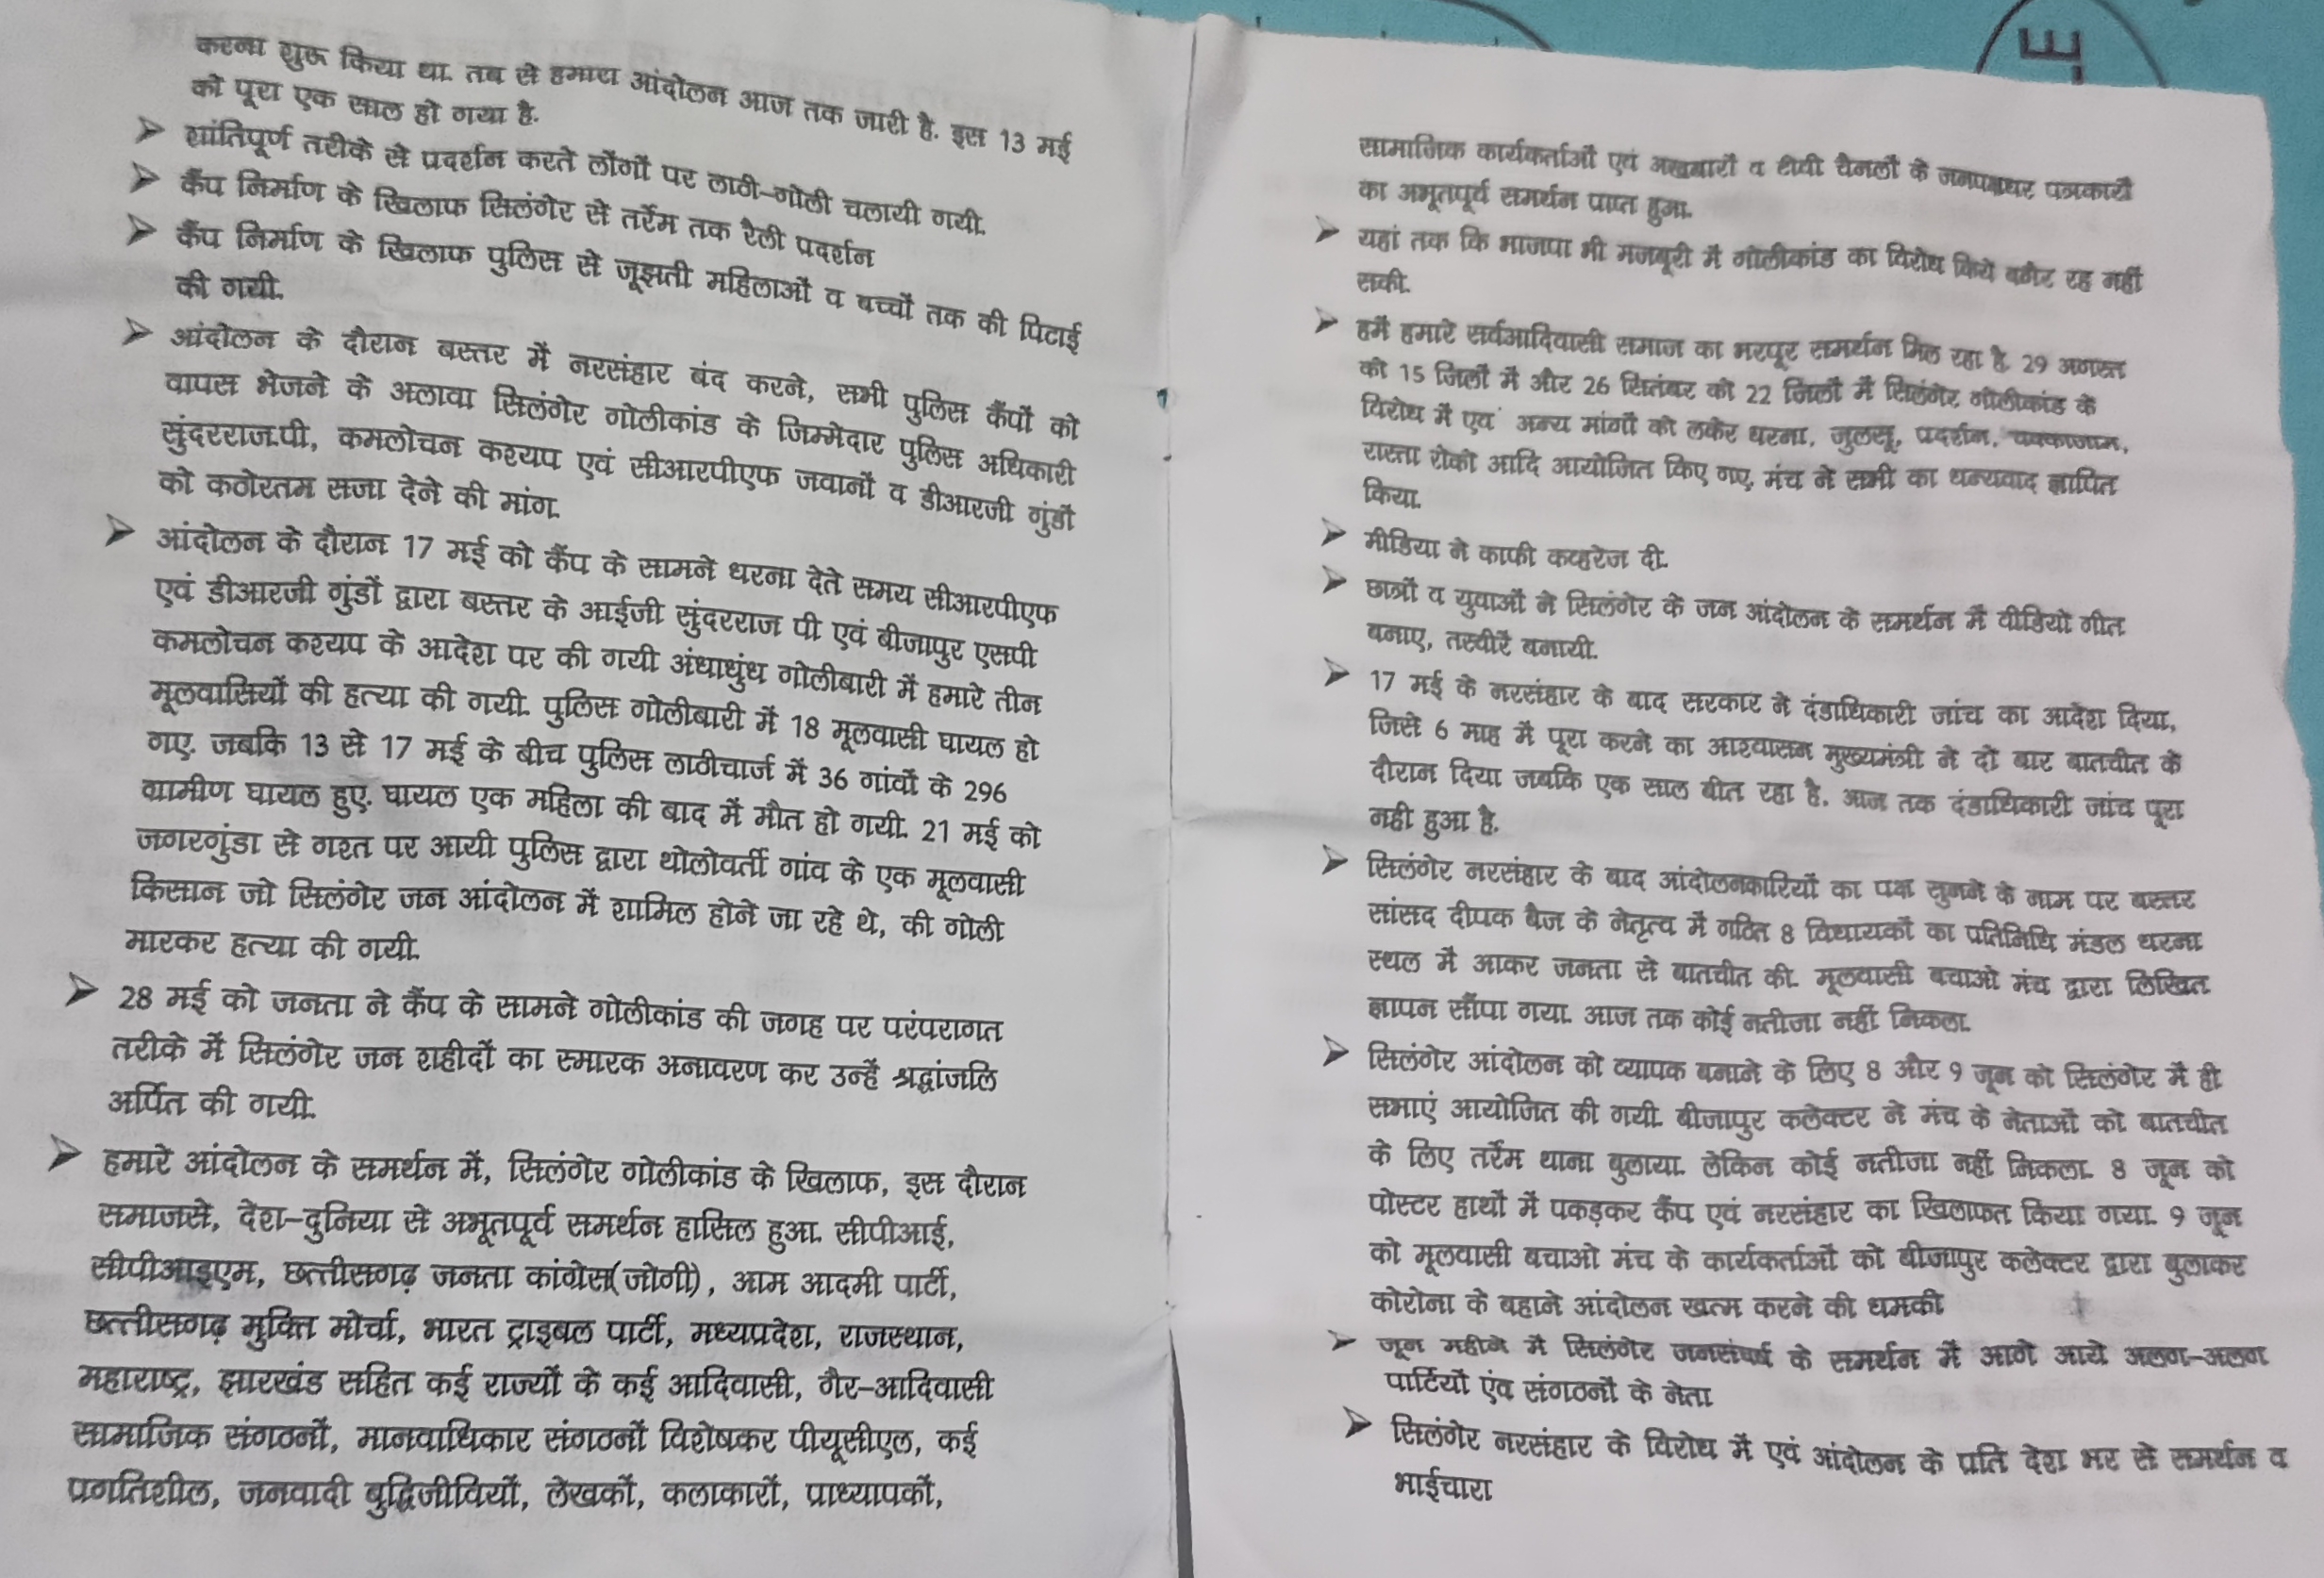 करना शुरू किया था. तब से हमारा आंदोलन आज तक जारी है. इस 13 मई
को पूरा एक साल हो गया है.
➢ शांतिपूर्ण तरीके से प्रदर्शन करते लोंगों पर लाठी-गोली चलायी गयी.
➢ कैंप निर्माण के खिलाफ सिलंगेर से तर्रेम तक रैली प्रदर्शन
➢ कैंप निर्माण के खिलाफ पुलिस से जूझती महिलाओं व बच्चों तक की पिटाई
की गयी.
➢ आंदोलन के दौरान बस्तर में नरसंहार बंद करने, सभी पुलिस कैंपों को
वापस भेजने के अलावा सिलंगेर गोलीकांड के जिम्मेदार पुलिस अधिकारी
सुंदरराज.पी, कमलोचन कश्यप एवं सीआरपीएफ जवानों व डीआरजी गुंडों
को कठोरतम सजा देने की मांग.
➢ आंदोलन के दौरान 17 मई को कैंप के सामने धरना देते समय सीआरपीएफ
एवं डीआरजी गुंडों द्वारा बस्तर के आईजी सुंदरराज पी एवं बीजापुर एसपी
कमलोचन कश्यप के आदेश पर की गयी अंधाधुंध गोलीबारी में हमारे तीन
मूलवासियों की हत्या की गयी. पुलिस गोलीबारी में 18 मूलवासी घायल हो
गए. जबकि 13 से 17 मई के बीच पुलिस लाठीचार्ज में 36 गांवों के 296
ग्रामीण घायल हुए. घायल एक महिला की बाद में मौत हो गयी. 21 मई को
जगरगुंडा से गश्त पर आयी पुलिस द्वारा थोलोवर्ती गांव के एक मूलवासी
किसान जो सिलंगेर जन आंदोलन में शामिल होने जा रहे थे, की गोली
मारकर हत्या की गयी.
➢ 28 मई को जनता ने कैंप के सामने गोलीकांड की जगह पर परंपरागत
तरीके में सिलंगेर जन शहीदों का स्मारक अनावरण कर उन्हें श्रद्धांजलि
अर्पित की गयी.
➢ हमारे आंदोलन के समर्थन में, सिलंगेर गोलीकांड के खिलाफ, इस दौरान
समाजसे, देश-दुनिया से अभूतपूर्व समर्थन हासिल हुआ. सीपीआई,
सीपीआइएम, छत्तीसगढ़ जनता कांग्रेस(जोगी), आम आदमी पार्टी,
छत्तीसगढ़ मुक्ति मोर्चा, भारत ट्राइबल पार्टी, मध्यप्रदेश, राजस्थान,
महाराष्ट्र, झारखंड सहित कई राज्यों के कई आदिवासी, गैर-आदिवासी
सामाजिक संगठनों, मानवाधिकार संगठनों विशेषकर पीयूसीएल, कई
प्रगतिशील, जनवादी बुद्धिजीवियों, लेखकों, कलाकारों, प्राध्यापकों,
सामाजिक कार्यकर्ताओं एवं अखबारों व टीवी चैनलों के जनपक्षधर पत्रकारों
का अभूतपूर्व समर्थन प्राप्त हुआ.
➢ यहां तक कि भाजपा भी मजबूरी में गोलीकांड का विरोध किये बगैर रह नहीं
सकी.
➢ हमें हमारे सर्वआदिवासी समाज का भरपूर समर्थन मिल रहा है. 29 अगस्त
को 15 जिलों में और 26 सितंबर को 22 जिलों में सिलंगेर गोलीकांड के
विरोध में एवं अन्य मांगों को लकेर धरना, जुलसू, प्रदर्शन, चक्काजाम,
रास्ता रोको आदि आयोजित किए गए. मंच ने सभी का धन्यवाद ज्ञापित
किया.
➢ मीडिया ने काफी कव्हरेज दी.
➢ छात्रों व युवाओं ने सिलंगेर के जन आंदोलन के समर्थन में वीडियो गीत
बनाए, तस्वीरें बनायी.
➢ 17 मई के नरसंहार के बाद सरकार ने दंडाधिकारी जांच का आदेश दिया,
जिसे 6 माह में पूरा करने का आश्वासन मुख्यमंत्री ने दो बार बातचीत के
दौरान दिया जबकि एक साल बीत रहा है. आज तक दंडाधिकारी जांच पूरा
नही हुआ है.
➢ सिलंगेर नरसंहार के बाद आंदोलनकारियों का पक्ष सुनने के नाम पर बस्तर
सांसद दीपक बैज के नेतृत्व में गठित 8 विधायकों का प्रतिनिधि मंडल धरना
स्थल में आकर जनता से बातचीत की. मूलवासी बचाओ मंच द्वारा लिखित
ज्ञापन सौंपा गया. आज तक कोई नतीजा नहीं निकला.
➢ सिलंगेर आंदोलन को व्यापक बनाने के लिए 8 और 9 जून को सिलंगेर में ही
सभाएं आयोजित की गयी. बीजापुर कलेक्टर ने मंच के नेताओं को बातचीत
के लिए तर्रेम थाना बुलाया. लेकिन कोई नतीजा नहीं निकला. 8 जून को
पोस्टर हाथों में पकड़कर कैंप एवं नरसंहार का खिलाफत किया गया. 9 जून
को मूलवासी बचाओ मंच के कार्यकर्ताओं को बीजापुर कलेक्टर द्वारा बुलाकर
कोरोना के बहाने आंदोलन खत्म करने की धमकी
➢ जून महीने में सिलंगेर जनसंघर्ष के समर्थन में आगे आये अलग-अलग
पार्टियों एंव संगठनों के नेता
➢ सिलंगेर नरसंहार के विरोध में एवं आंदोलन के प्रति देश भर से समर्थन व
भाईचारा